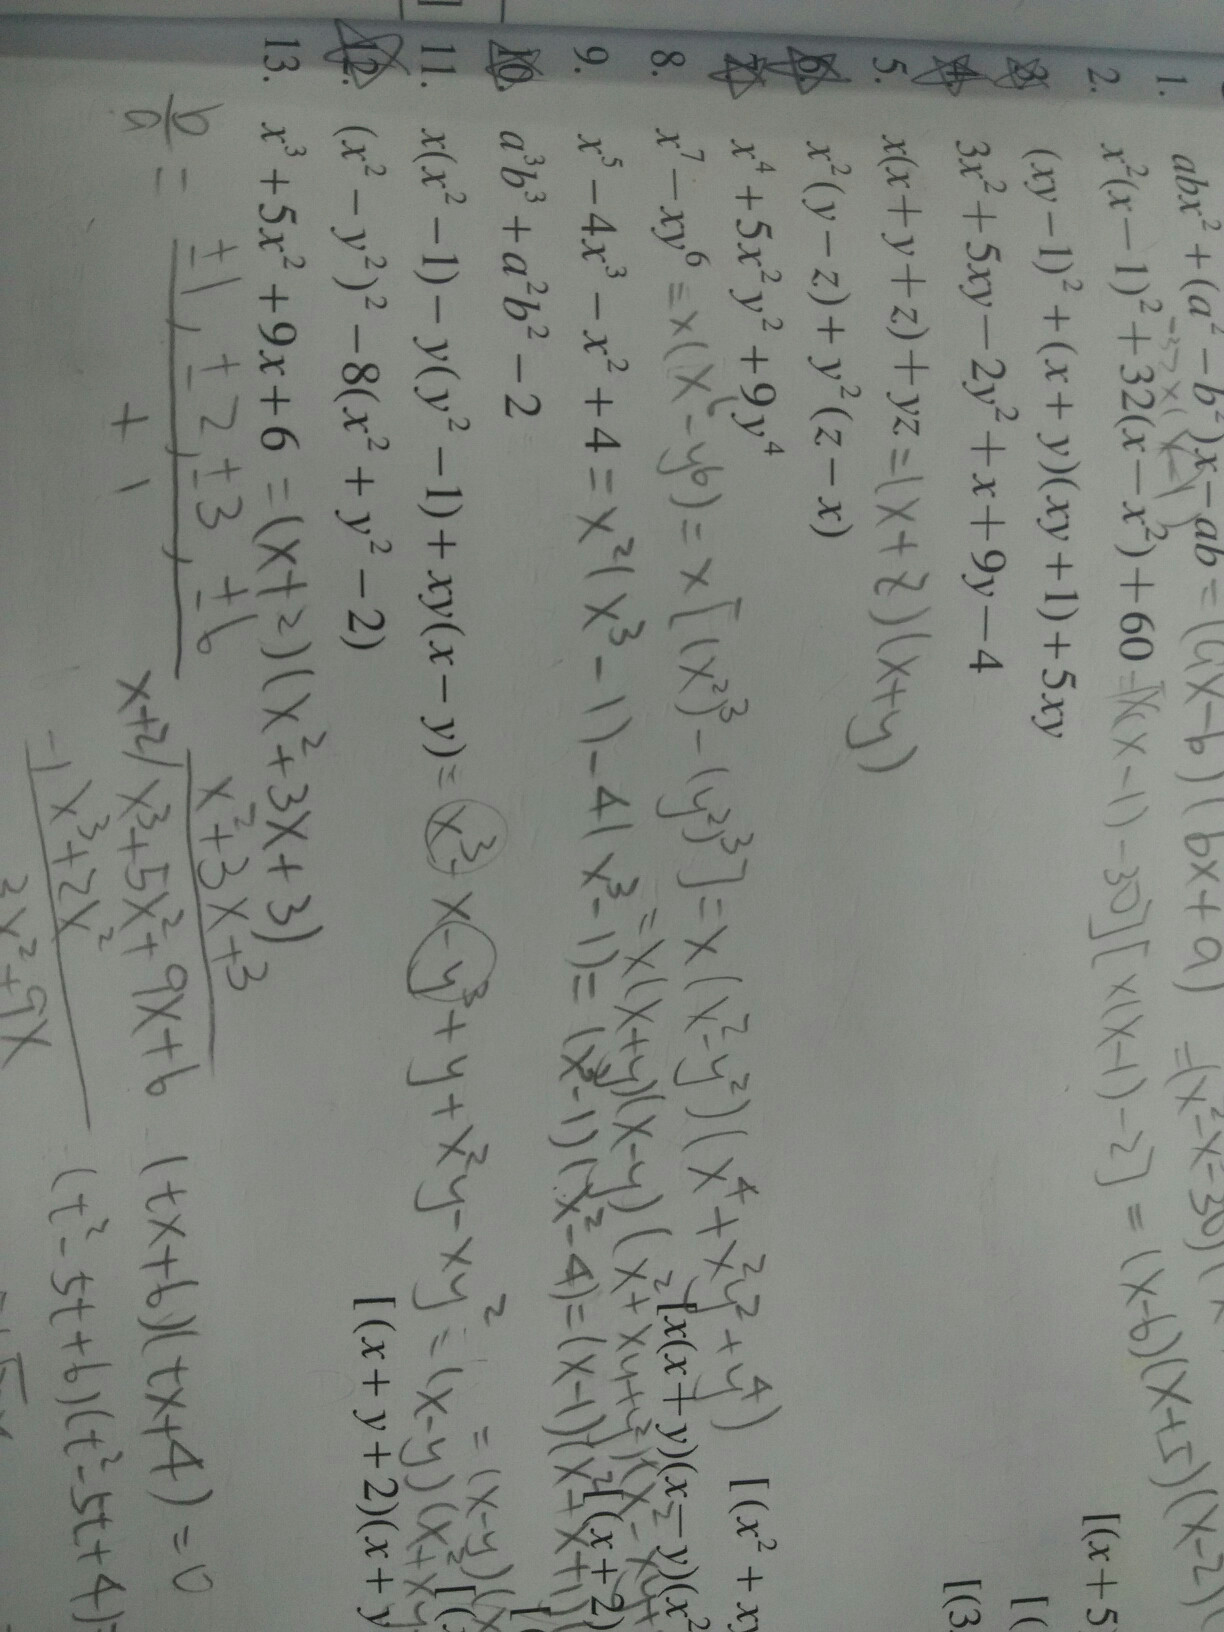 1. abx² + (a² − b²)x − ab = (ax−b)(bx+a) = (x²−x−30)(x
2. x²(x−1)² + 32(x−x²) + 60 = [x(x−1)−30][x(x−1)−2] = (x−6)(x+5)(x−2)(
[(x+5
3. (xy−1)² + (x+y)(xy+1) + 5xy
[(
4. 3x² + 5xy − 2y² + x + 9y − 4
[(3
5. x(x+y+z) + yz = (x+z)(x+y)
6. x²(y−z) + y²(z−x)
7. x⁴ + 5x²y² + 9y⁴
[(x² + xy
8. x⁷ − xy⁶ = x(x⁶−y⁶) = x[(x²)³−(y²)³] = x(x²−y²)(x⁴+x²y²+y⁴)
[x(x+y)(x−y)(x²
= x(x+y)(x−y)(x²+xy+y²)(x²−xy+
9. x⁵ − 4x³ − x² + 4 = x²(x³−1)−4(x³−1) = (x³−1)(x²−4) = (x−1)(x²+x+1)
[(x+2)
10. a³b³ + a²b² − 2
[
11. x(x²−1) − y(y²−1) + xy(x−y) = x³−x−y³+y+x²y−xy² = (x−y)(x²+xy
= (x−y)(x
[(
12. (x²−y²)² − 8(x²+y²−2)
[(x+y+2)(x+y
13. x³ + 5x² + 9x + 6 = (x+2)(x²+3x+3)
b/a = ±1, ±2, ±3, ±6
+ 1
x²+3x+3
x+2 x³+5x²+9x+6
−) x³+2x²
3x²+9x
(tx+6)(tx+4) = 0
(t²−5t+6)(t²−5t+4)=